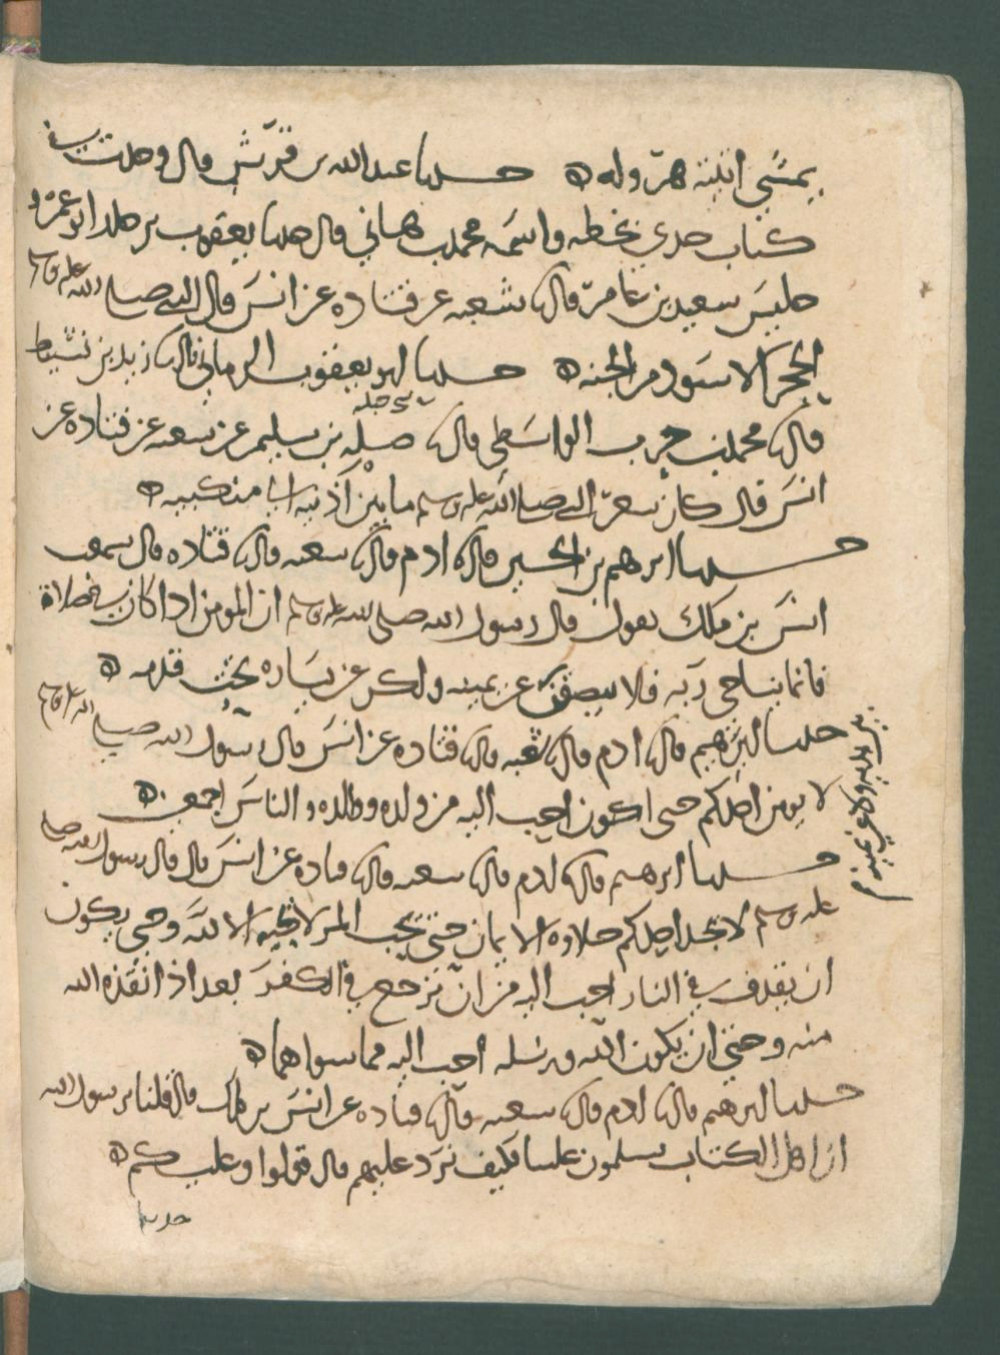 يمشي اتيته هرولة ه حدثنا عبد الله بن قريش قال وجدت في
كتاب جدي بخطه واسمه محمد بن هاني قال حدثنا يعقوب بن خلد ابو عمرو
جليس سعيد بن عامر قال شعبه عن قتاده عن انس قال النبي صلى الله عليه وسلم
الحجر الاسود من الجنه ه حدثنا ابو يعقوب الرماني قال زيد بن نشيط
قال محمد بن حرب الواسطي قال صله بن سليم عن شعبه عن قتاده عن
انس قال كان شعر النبي صلى الله عليه وسلم ما بين اذنيه الى منكبيه ه
حدثنا ابرهيم بن الحسين قال ادم قال شعبه قال قتاده قال سمعت
انس بن ملك يقول قال رسول الله صلى الله عليه وسلم ان المومن اذا كان في صلاة
فانما يناجي ربه فلا يبصقن عن يمينه ولكن عن يساره تحت قدمه ه
بين يديه ولا عن يمينه
حدثنا ابرهيم قال ادم قال شعبه قال قتاده عن انس قال رسول الله صلى الله عليه وسلم
لا يومن احدكم حتى اكون احب اليه من ولده ووالده والناس اجمعين ه
حدثنا ابرهيم قال ادم قال شعبه قال قتاده عن انس قال قال رسول الله صلى
الله عليه وسلم لا يجد احدكم حلاوة الايمان حتى يحب المر لا يحبه الا لله وحتى يكون
ان يقذف في النار احب اليه من ان يرجع في الكفر بعد اذ انقذه الله
منه وحتى ان يكون الله ورسله احب اليه مما سواهما ه
حدثنا ابرهيم قال ادم قال شعبه قال قتاده عن انس بن ملك قال قلنا يرسول الله
ان اهل الكتاب يسلمون علينا فكيف نرد عليهم قال قولوا وعليكم ه
حدثنا